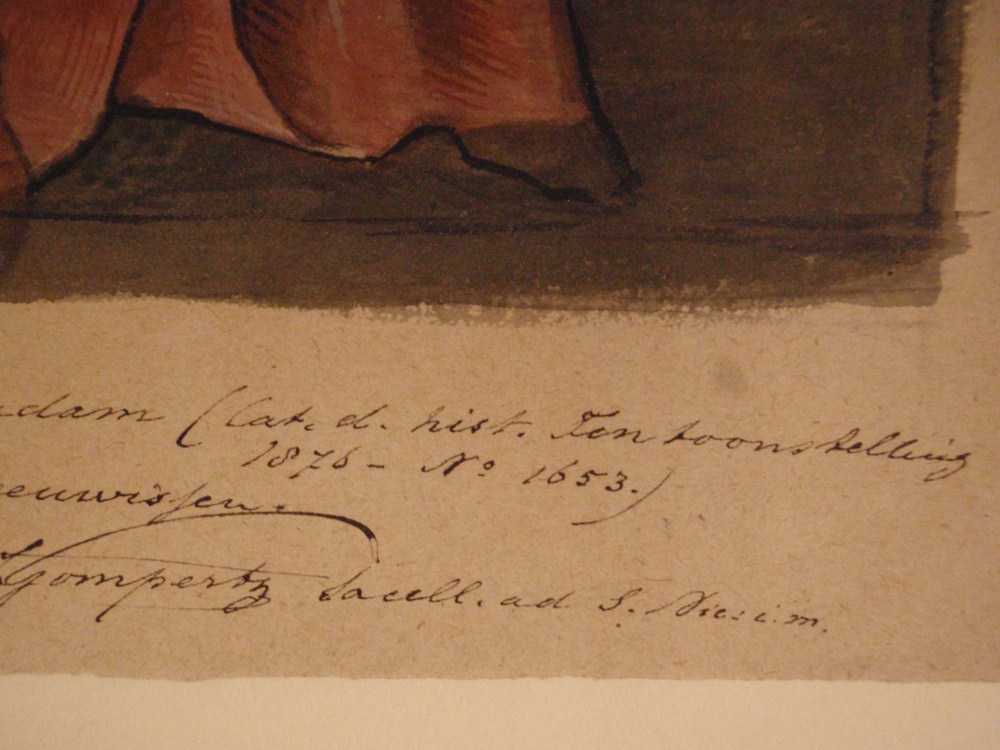 dam (Cat. d. hist. Tentoonstelling
1876 - No 1653.)
eeuwissen.
Gompertz Sacell. ad S. Nic. i. m.